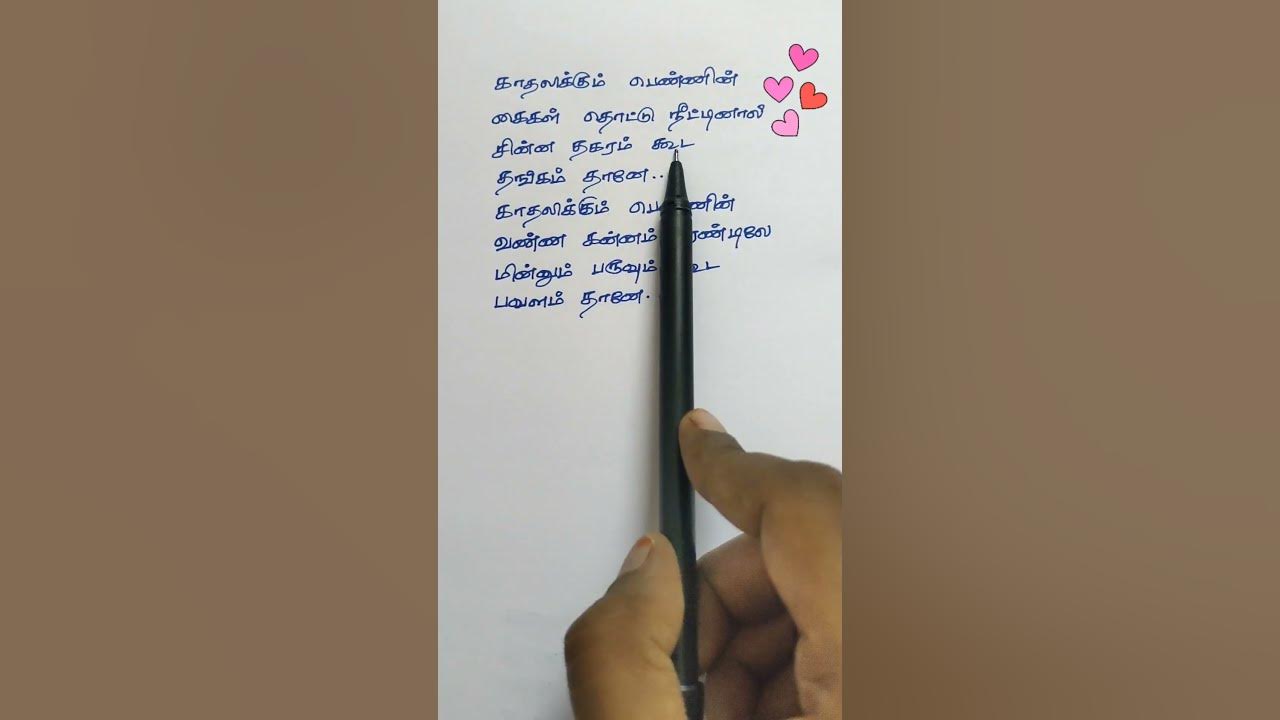 காதலிக்கும் பெண்ணின்
கைகள் தொட்டு நீட்டினால்
சின்ன தகரம் கூட
தங்கம் தானே..
காதலிக்கும் பெண்ணின்
வண்ண கன்னம் ரண்டிலே
மின்னும் பருவும் கூட
பவளம் தானே..